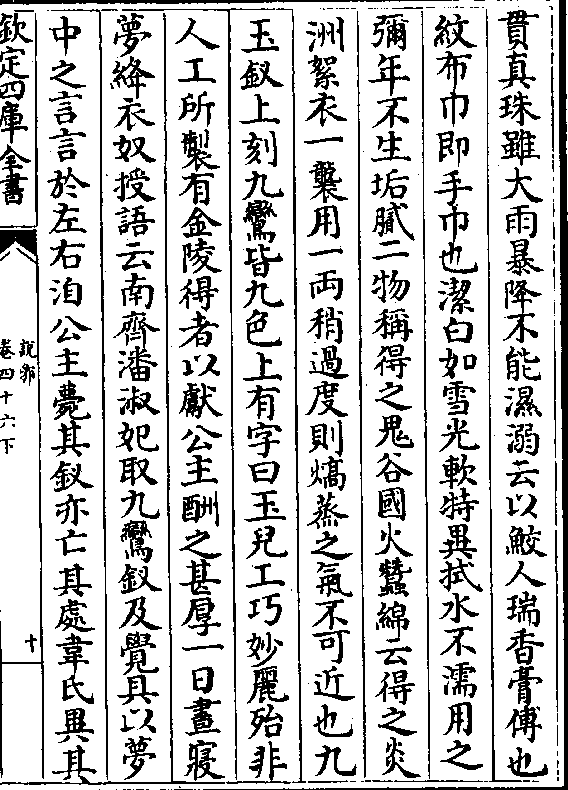 貫真珠雖大雨暴降不能濕溺云以鮫人瑞香膏傅也
紋布巾即手巾也潔白如雪光軟特異拭水不濡用之
彌年不生垢膩二物稱得之鬼谷國火蠶綿云得之炎
洲絮衣一襲用一両稍過度則熇蒸之氣不可近也九
玉釵上刻九鸞皆九色上有字曰玉兒工巧妙麗殆非
人工所製有金陵得者以獻公主酬之甚厚一日晝寢
夢絳衣奴授語云南齊潘淑妃取九鸞釵及覺具以夢
中之言言於左右洎公主薨其釵亦亡其處韋氏異其
欽定四庫全書
說郛
卷四十六下
十